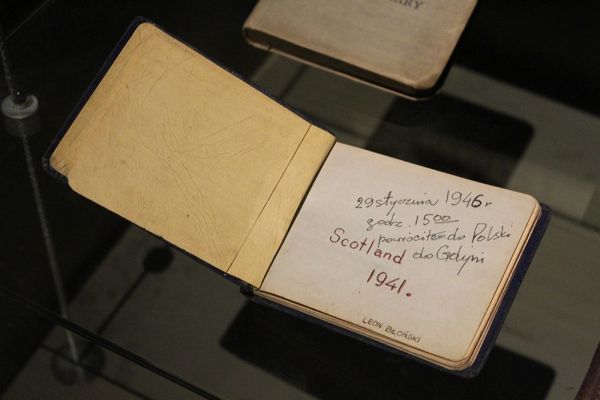 29 stycznia 1946 r
godz. 15 00
powróciłem do Polski
Scotland do Gdyni
1941.
LEON BŁOŃSKI